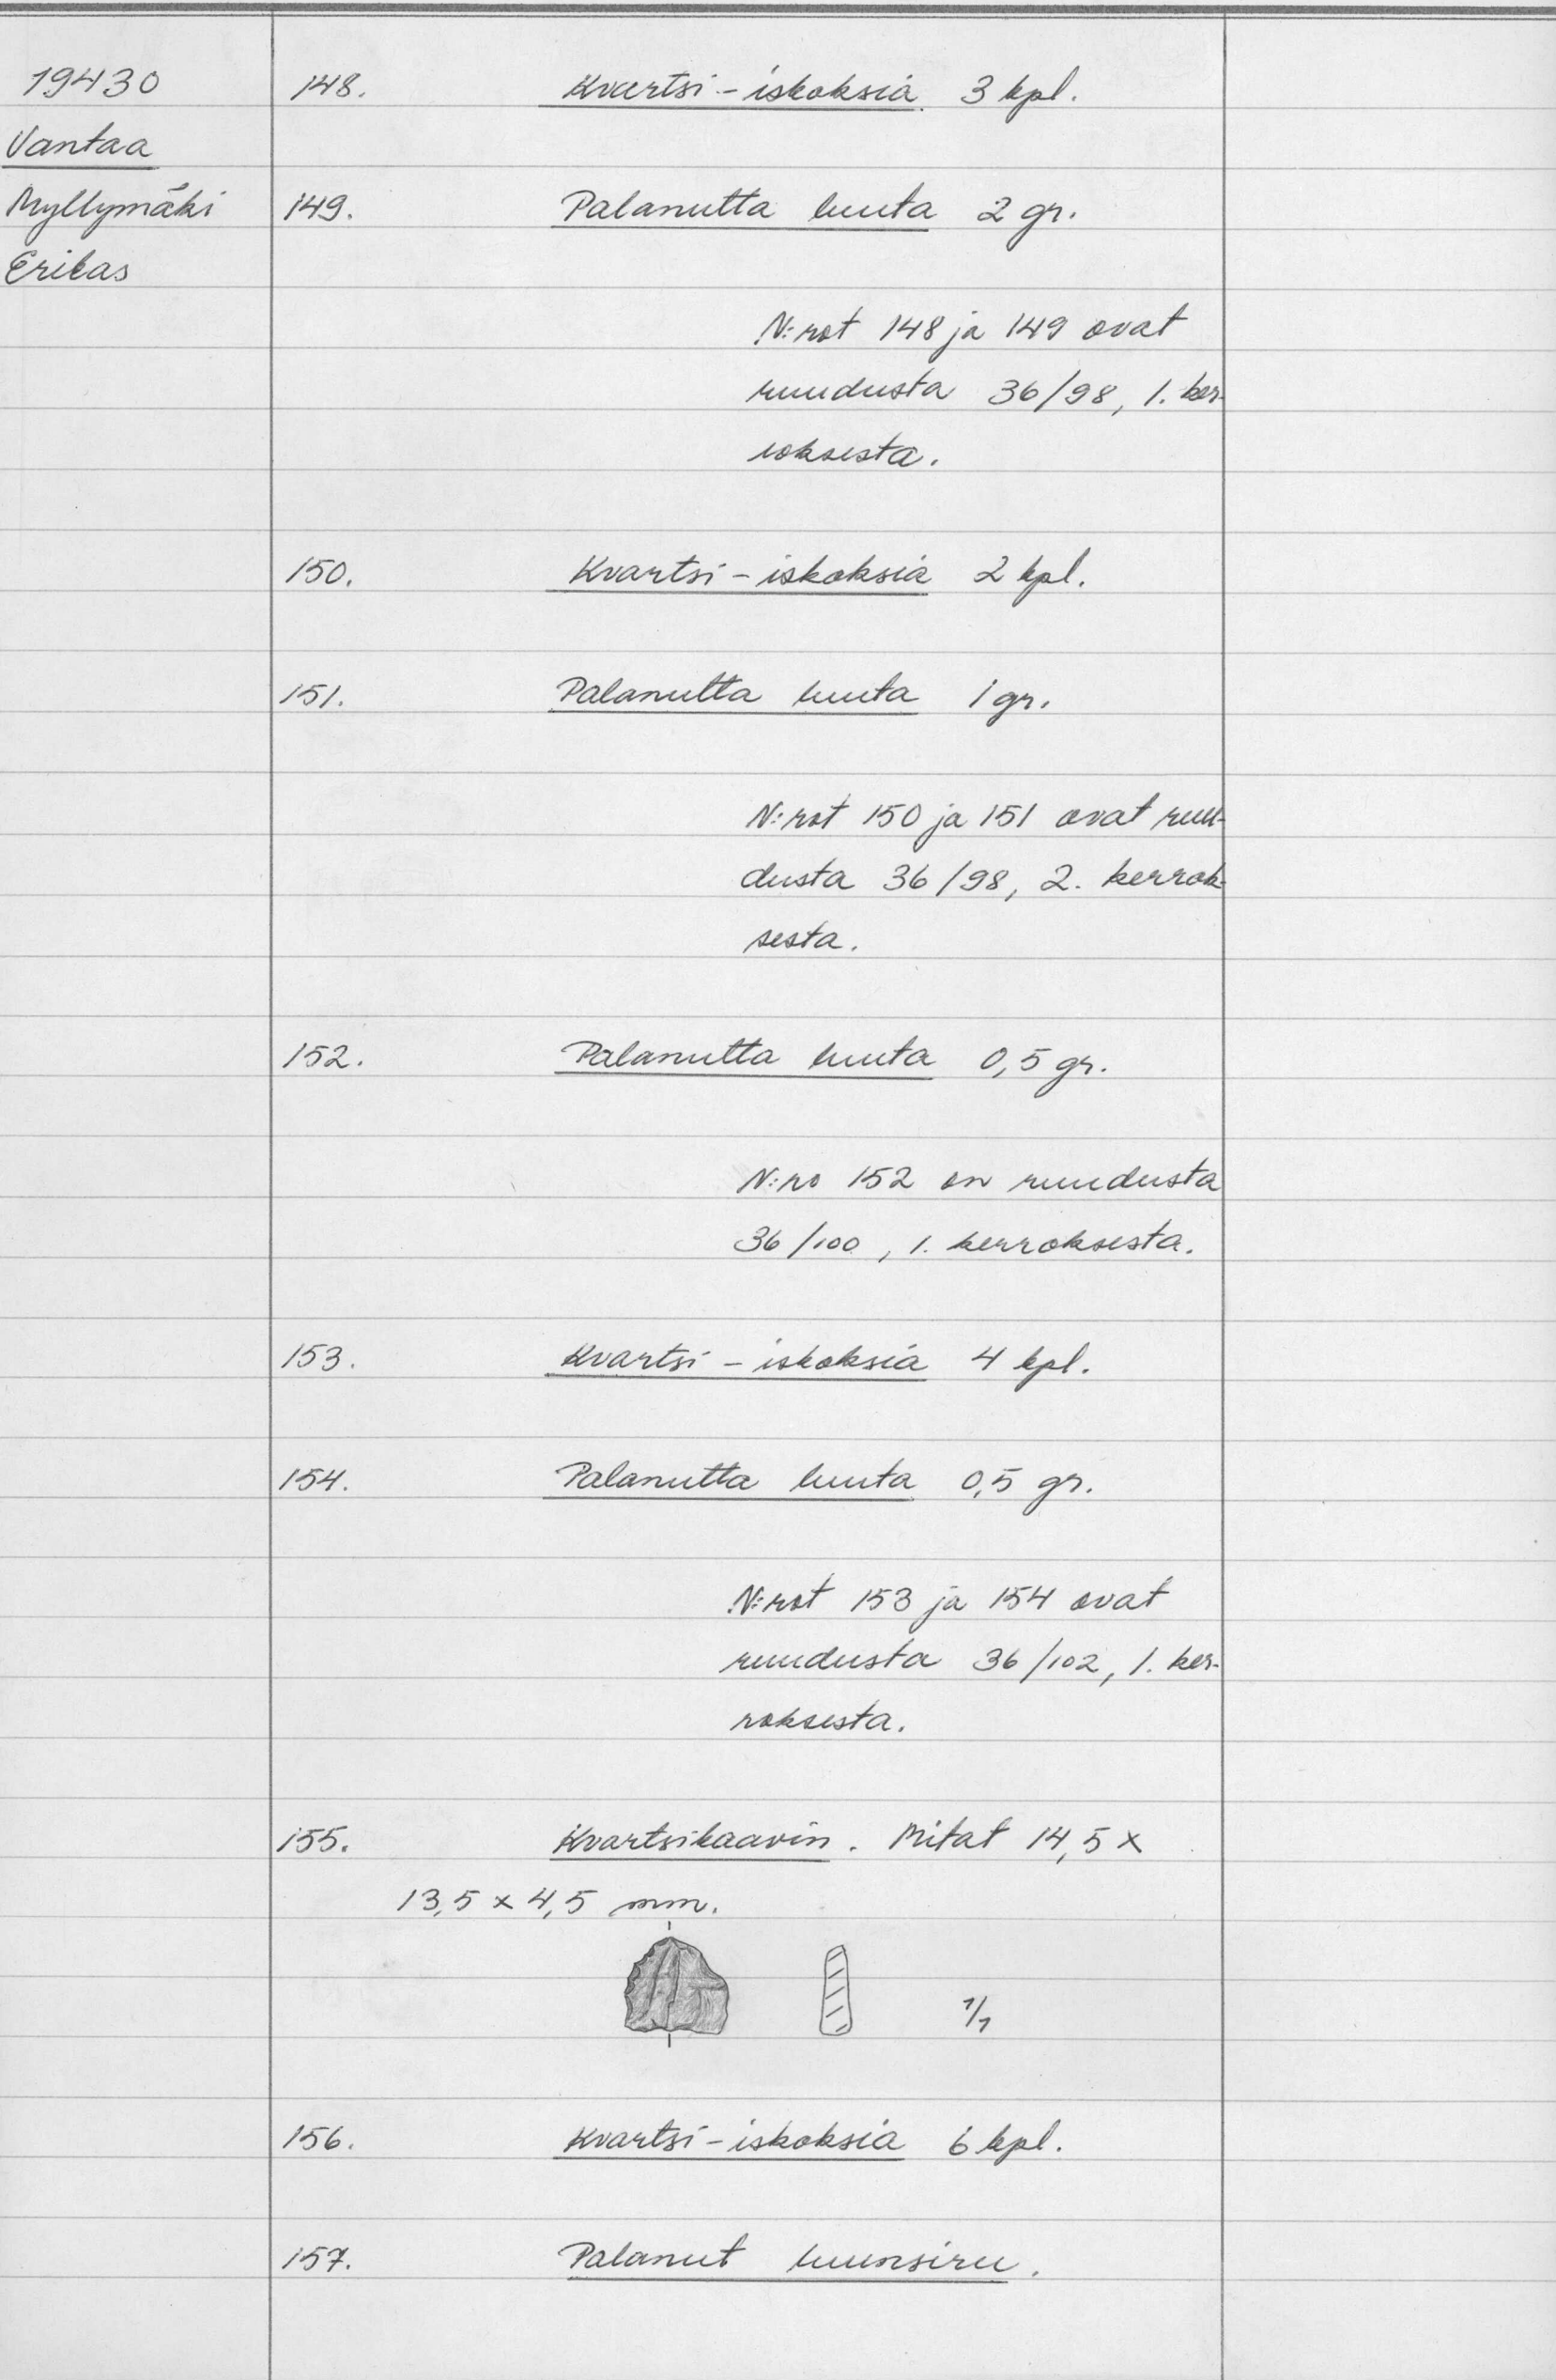 19430
Vantaa
Myllymäki
Erikas
148. Kvartsi-iskoksia 3 kpl.
149. Palanutta luuta 2 gr.
N:rot 148 ja 149 ovat
ruudusta 36/98, 1. ker-
roksesta.
150. Kvartsi-iskoksia 2 kpl.
151. Palanutta luuta 1 gr.
N:rot 150 ja 151 ovat ruu-
dusta 36/98, 2. kerrok-
sesta.
152. Palanutta luuta 0,5 gr.
N:ro 152 on ruudusta
36/100, 1. kerroksesta.
153. Kvartsi-iskoksia 4 kpl.
154. Palanutta luuta 0,5 gr.
N:rot 153 ja 154 ovat
ruudusta 36/102, 1. ker-
roksesta.
155. Kvartsikaavin. Mitat 14,5 x
13,5 x 4,5 mm.
1/1
156. Kvartsi-iskoksia 6 kpl.
157. Palanut luunsiru.